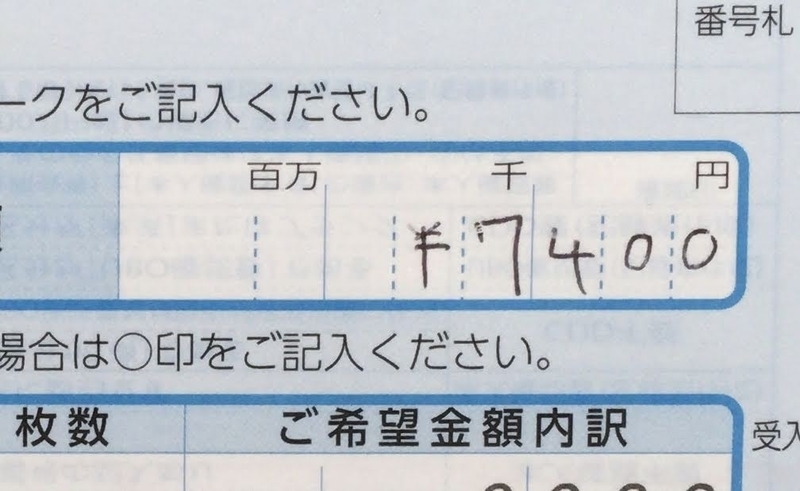 番号札
ークをご記入ください。
百万 千 円
¥7400
場合は○印をご記入ください。
枚数 ご希望金額内訳
受入